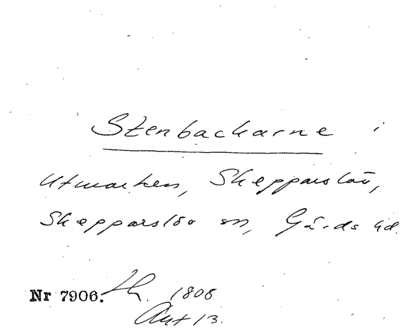 Stenbackarne i
Utmarken, Skepparslöv,
Skepparslöv sn, Gärds hd.
Nr 7906. 1808
Akt 13.